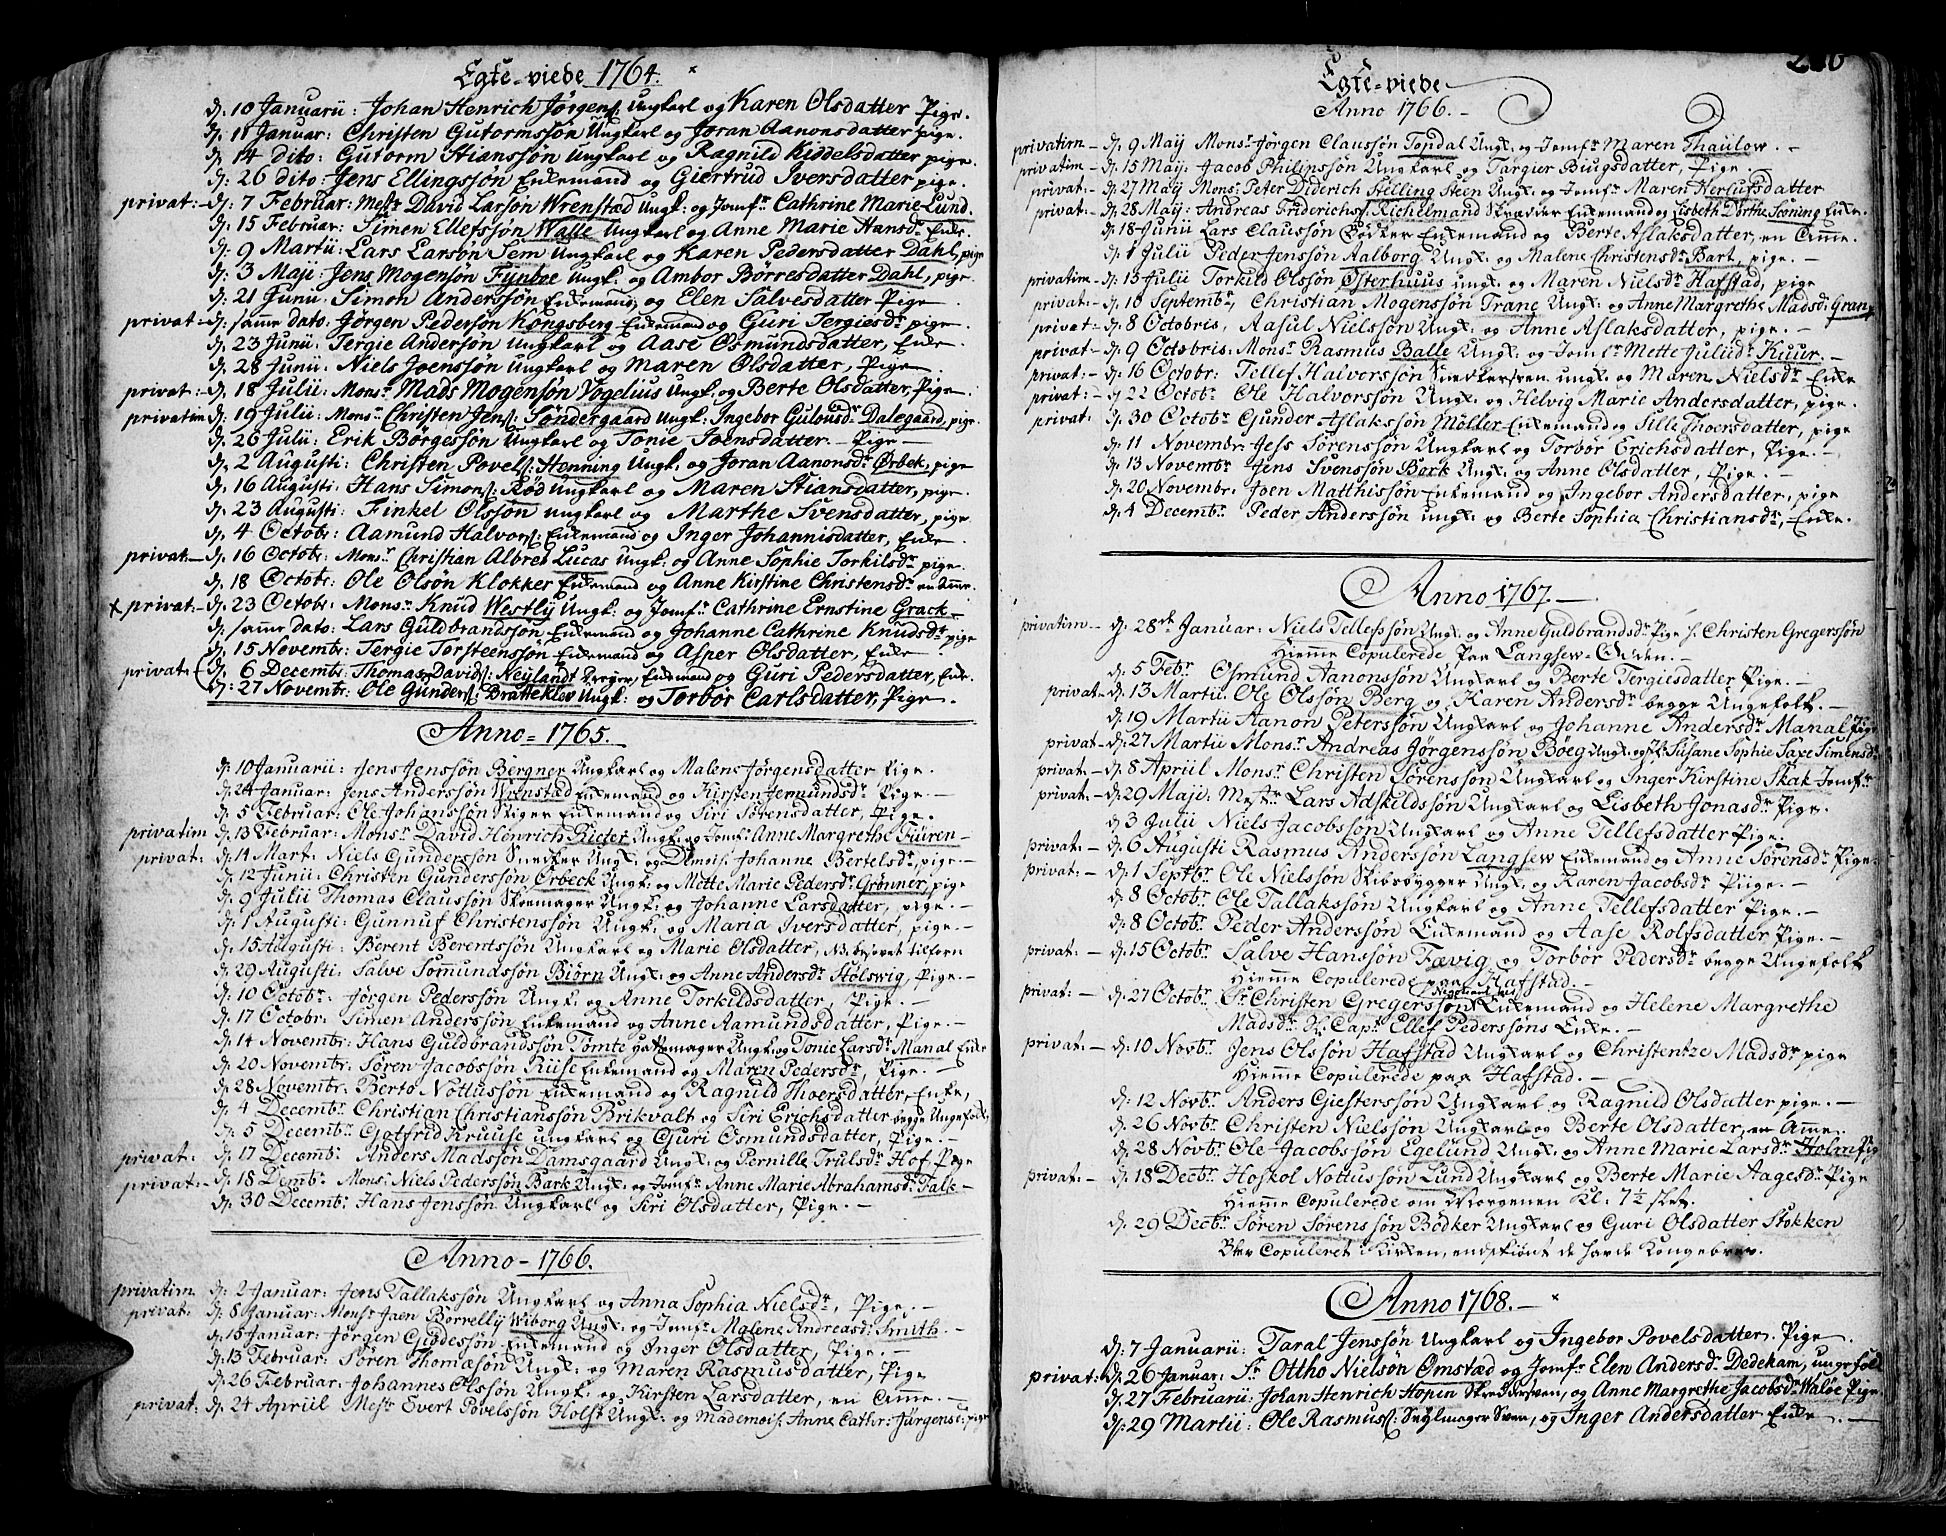 Egte-viede 1764.
d. 10 Januarii: Johan Henrich Jørgens: Ungkarl og Karen Olsdatter Pige.
d. 11 Januar: Christen Gutormssøn Ungkarl og Joran Aanonsdatter pige.
d. 14 dito: Gutorm Stianssøn Ungkarl og Ragnild Kiddelsdatter pige.
d: 26 dito: Jens Ellingssøn Enkemand og Giertrud Iversdatter pige.
privat:- d: 7 Februar: Mestr David Larsøn Wrenstad Ungk: og Jomfr Cathrine Marie Lund.
d: 15 Februar: Simen Ellefssøn Walle Ungkarl og Anne Marie Hansdr Enke.
d; 9 Martii: Lars Larsøn Sem Ungkarl og Karen Pedersdatter Dahl, pige
d; 3 Maji: Jens Mogensøn Fynboe Ungk: og Ambor Børresdatter Dahl, pige
d; 21 Junii: Simon Anderssøn Enkemand, og Elen Salvesdatter Pige
privat- d; samme dato: Jørgen Pedersøn Kongsberg Enkemand og Guri Tergiesdr pige.
d; 23 Junii: Tergie Andersøn Ungkarl og Aase Osmundsdatter, Enke.
d, 28 Junii: Niels Joenssøn Ungkarl og Maren Olsdatter, Pige.
privat:- d, 18 Julii: Monsr Mads Mogensøn Vogelius Ungk: og Berte Olsdatter, Pige
privatim d; 19 Julii: Monsr Christen Jens: Søndergaard Ungk: Ingebor Gulousdr Dalegaard, pige.
d, 26 Julii: Erik Børgessøn Ungkarl og Tonie Joensdatter. Pige
d, 2 Augusti: Christen Povels: Henning Ungk: og Joran Aanonsdr Ørbek, pige
d, 16 Augusti: Hans Simons: Rød Ungkarl og Maren Stiansdatter, pige.
d; 23 Augusti: Finkel Olssøn Ungkarl og Marthe Svensdatter, pige
d; 4 Octobr: Aamund Halvors: Enkemand og Inger Johannisdatter, Enke
privat:- d, 16 Octobr: Monsr Christian Albred Lucas Ungk: og Anne Sophie Torkilsdr pige.
d, 18 Octobr: Ole Olsøn Klokker Enkemand og Anne Kirstine Christensdr en Amme.
x privat:- d; 23 Octobr: Monsr Knud Westly Ungk: og Jomfr Cathrine Ernstine Grack
d; samme dato: Lars Guldbrandssøn Enkemand og Johanne Cathrine Knudsdr pige
d; 15 Novembr: Tergie Torsteenssøn Enkemand og Asper Olsdatter, Enke
privat: d, 6 Decembr: Thomas Davids: Neylandt Enkemand og Guri Pedersdatter, Enke.
d: 27 Novembr: Ole Gunders: Bratteklev Ungk: og Torbør Carlsdatter, Pige.
Anno- 1765.
d; 10 Januarii: Jens Jenssøn Bergner Ungkarl og Malene Jørgensdatter Pige.
d; 24 Januar: Jens Anderssøn Wrenstad Enkemand og Kirsten Jermundsdr Pige.
d; 5 Februar: Ole Johanssøn Skiger Enkemand og Siri Sørensdatter, Pige.
privatim d; 13 Februar: Monsr David Hönrich Rieter Ungk: og Jomfr Anne Margrethe Füüren
privat: d; 14 Mart: Niels Gunderssøn Snedker Ungk: og Johanne Bertelsdr pige.
d; 12 Junii: Christen Gunderssøn Ørbeck Ungk: og Mette Marie Pedersdr Grønner, pige
d; 9 Julii Thomas Claussøn Skomager Ungk: og Johanne Larsdatter, pige.
d; 1 Augusti: Gunnuf Christenssøn Ungk: og Maria Iversdatter, pige.
d; 15 Augusti: Berent Berentssøn Ungkarl og Marie Olsdatter, NB. besovet tilforn
d; 29 Augusti: Salve Sommundssøn Biörn Ungk: og Anne Andersdr Stölswig, Pige.
d; 10 Octobr: Jørgen Pederssøn Ungk: og Anne Torkildsdatter, Pige.
d; 17 Octobr: Simen Anderssøn Enkemand og Anne Aamundsdatter, Pige.
d; 14 Novembr: Hans Guldbrandssøn Tomte Hattemager Ungk: og Tonie Larsdr Manal Enke
d; 20 Novembr: Søren Jacobssøn Ruse Enkemand og Maren Pedersdr, Pige.
d; 28 Novembr: Berto Nottussøn Enkemand og Ragnild Thoersdatter, Enke,
d; 4 Decembr Christian Christianssøn Brikvalt og Siri Erichsdatter begge Ungefolk,
d; 5 Decembr Gotfrid Kruuse Ungkarl og Guri Osmundsdatter, Pige.
privat: d; 17 Decembr Anders Madssøn Damsgaard Ungk: og Pernille Trulsdr Hof, Pige
privat:- d; 18 Dembr: Monsr Niels Pederssøn Bark Ungk: og Jomfr Anne Marie Abrahamsdr Falk
d; 30 Decembr: Hans Jenssøn Ungkarl og Siri Olsdatter, Pige.
Anno- 1766.
privatim d; 2 Januar: Jens Tallakssøn Ungkarl og Anna Sophia Nielsdr, Pige.
privat: d; 8 Januar: Monsr Jaen Borrelly Wiborg Ungk: og Jomfr Malene Andreasdr Smith.
d; 15 Januar: Jørgen Gundessøn Enkemand og Inger Olsdatter, Pige.
d; 13 Februar: Søren Thomæsøn Ungk: og Maren Rasmusdatter, Pige
d; 26 Februar: Johannes Olssøn Ungk: og Kirsten Larsdatter, en Amme.
privat: d; 24 Apriil Mestr Evert Povelssøn Holst Ungk: og Mademois. Anne Cathr: Jürgens: pige
Egte-viede
Anno 1766.
privatim d; 9 Maij Monsr Jørgen Claussøn Topdal Ungk: og Jomfr Maren Thaulow.
privatim d; 15 Maij: Jacob Philipssøn Ungkarl og Targier Biugsdatter, Pige
privat: d; 27 Maij Monsr Peter Diderich Stelling Steen Ungk: og Jomfr Maren Herlufsdatter
privat:- d; 28 Maij: Andreas Friderichs: Richelmand Skrædder Enkemand og Lisbeth Dorthe Scöning Enke.
d; 18 Junii Lars Claussøn Bødker Enkemand og Berte Aslaksdatter, en Amme.
d; 1 Julii Peder Jenssøn Aalborg Ungk: og Malene Christensdr Bart, pige.
privatim d; 13 Julii Torkild Olssøn Østerhuus ungk: og Maren Nielsdr Hafstad, pige
privat:- d; 10 Septembr, Christian Mogenssøn Trane Ungk: og Anne Margrethe Madsdr Gran,
privat- d; 8 Octobris, Aasul Nielssøn Ungk: og Anne Aslaksdatter, pige.
privat- d; 9 Octobris: Monsr Rasmus Balle Ungk: og Jomfr Mette Juliidr Kuur.
privat:- d; 16 Octobr: Tellef Halvorssøn Snedkersven ungk: og Maren Nielsdr Enke
privat:- d; 22 Octobr Ole Halvorssøn Ungk: og Helvig Marie Andersdatter, pige.
privat: d; 30 Octobr Gunder Aslakssøn Möller Enkemand og Sille Thoersdatter, pige
d; 11 Novembr: Jess Sørenssøn Ungkarl og Torbør Erichsdatter, Pige.
d; 13 Novembr Jens Svenssøn Bark Ungk: og Anne Olsdatter, Pige.
d; 20 Novembr: Joen Matthissøn Enkemand og Ingebor Andersdatter, pige
d; 4 Decembr: Peder Anderssøn ungk: og Berte Sophia Christiansdr, Enke.
Anno 1767.
privatim d; 28de Januar: Niels Tellefssøn Ungk: og Anne Guldbrandsdr Pige Christen Gregerssøn
Hiemme Copulerede paa Langsew-Evien.
d; 5 Febr Osmund Aanonssøn Ungkarl og Berte Tergiesdatter Pige.
privat- d; 13 Martii Ole Olssøn Berg og Karen Andersdr begge Ungefolk.
d; 19 Martii Aanon Peterssøn Ungkarl og Johanne Andersdr Manal Pige
privat- d; 27 Martii Monsr Andreas Jørgenssøn Böeg Ungk: og Susane Sophie Saxe Simensdr
privat:- d; 8 Apriil Monsr Christen Sørenssøn Ungkarl og Inger Kirstine Skak Jomfr
privat:- d; 29 Maji: Mestr Lars Adskildssøn Ungkarl og Lisbeth Jonasdr Pige.
d; 3 Julii Niels Jacobssøn Ungkarl og Anne Tellefsdatter Pige.
privat:- d; 6 Augusti Rasmus Anderssøn Langsew Enkemand og Anne Sørensdr Pige.
privat:- d; 1 Septbr Ole Nielssøn Skibsbygger Ungk: og Karen Jacobsdr Piige.
d; 8 Octobr Ole Tallakssøn Ungkarl og Anne Tellefsdatter Pige.
d; 8 Octobr Peder Anderssøn Enkemand og Aase Rolfsdatter Pige.
privat:- d; 15 Octobr Salve Hanssøn Fævig og Torbør Pedersdr begge Ungefolk
Hiemme Copulerede paa Hafstad.
privat:- d; 27 Octobr Sr Christen Gregerssøn Enkemand og Helene Margrethe
Madsdr Capn Ellef Pederssøns Enke.
privat:- d: 10 Novbr Jens Olssøn Hafstad Ungkarl og Christentze Madsdr pige
Hiemme Copulerede paa Hafstad.
d; 12 Novbr Anders Giesterssøn Ungkarl og Ragnild Olsdatter pige.
d; 26 Novbr Christen Nielssøn Ungkarl og Berte Olsdatter, en Amme.
d; 28 Novbr Ole Jacobssøn Egelund Ungk: og Anne Marie Larsdr Holm Pig
privat:- d; 18 Decbr Hoskol Nottussøn Lund Ungkarl og Berte Marie Aagesdr Pige
Hiemme Copulerede om Morgenen Kl. 7½ slet.
d; 29 Decbr Søren Sørenssøn Bödker Ungkarl og Guri Olsdatter Stokken
Blev Copuleret i Kirken, endskiønt de havde Kongebrev.
Anno 1768.
d; 7 Januarii: Taral Jenssøn Ungkarl og Ingebor Povelsdatter. Pige.
privat: d; 26 Januar: Sr Ottho Nielson Omstæd og Jomfr Elen Andersdr Dedekam, unge folk
d; 27 Februarii: Johan Henrich Hopen Skreddersven, og Anne Margrethe Jacobsdr Waløe Pige
d; 29 Martii: Ole Rasmus: Seylmager Sven, og Inger Andersdatter Enke.